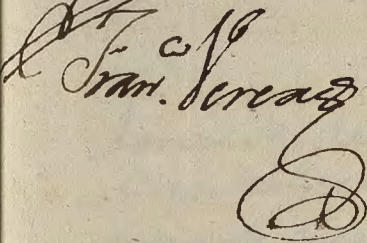 Fran.co Vereas